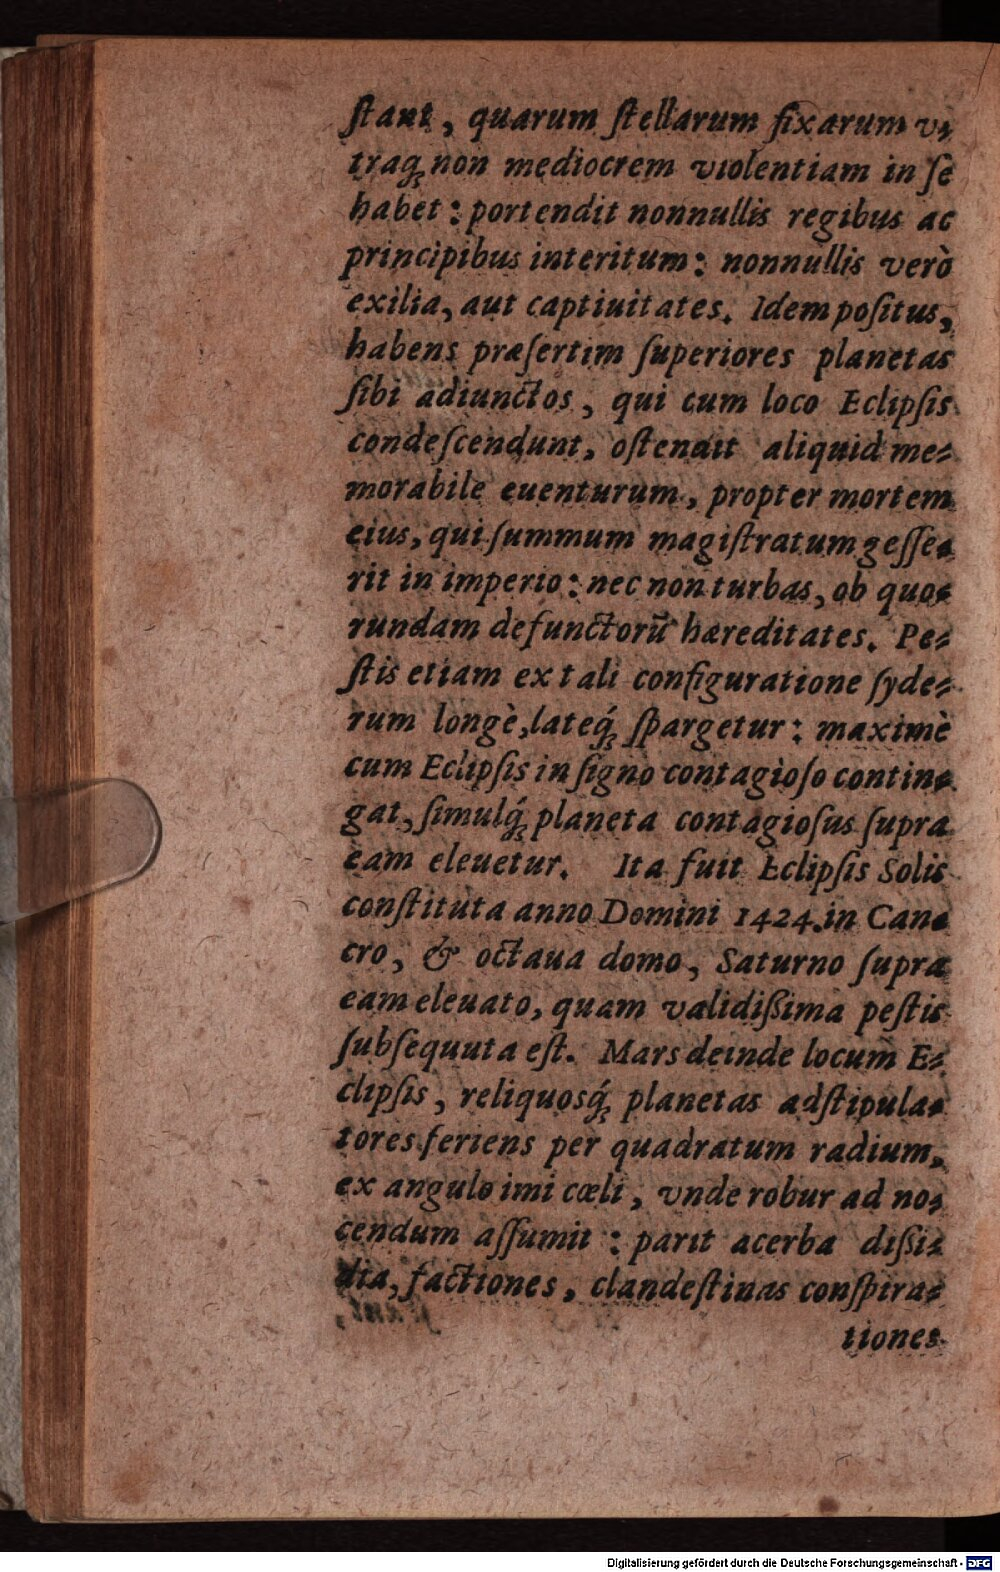 ſtant, quarum ſtellarum fixarum v-
traqꝫ non mediocrem violentiam in ſe
habet: portendit nonnullis regibus ac
principibus interitum: nonnullis verò
exilia, aut captiuitates. Idem poſitus,
habens præſertim ſuperiores planetas
ſibi adiunctos, qui cum loco Eclipſis
condeſcendunt, oſtendit aliquid me-
morabile euenturum, propter mortem
eius, qui ſummum magiſtratum geſſe-
rit in imperio: nec non turbas, ob quo-
rundam defunctorū hæreditates. Pe-
ſtis etiam ex tali configuratione ſyde-
rum longè, lateqꝫ́ ſpargetur: maximè
cum Eclipſis in ſigno contagioſo contin-
gat, ſimulqꝫ́ planeta contagioſus ſupra
eam eleuetur. Ita fuit Eclipſis Solis
conſtituta anno Domini 1424. in Can-
cro, & octaua domo, Saturno ſupra
eam eleuato, quam validiſsima peſtis
ſubſequuta eſt. Mars deinde locum E-
clipſis, reliquosqꝫ́ planetas adſtipula-
tores feriens per quadratum radium,
ex angulo imi cœli, vnde robur ad no-
cendum aſſumit: parit acerba diſsi-
dia, factiones, clandeſtinas conſpira-
tiones
Digitalisierung gefördert durch die Deutsche Forschungsgemeinschaft - DFG